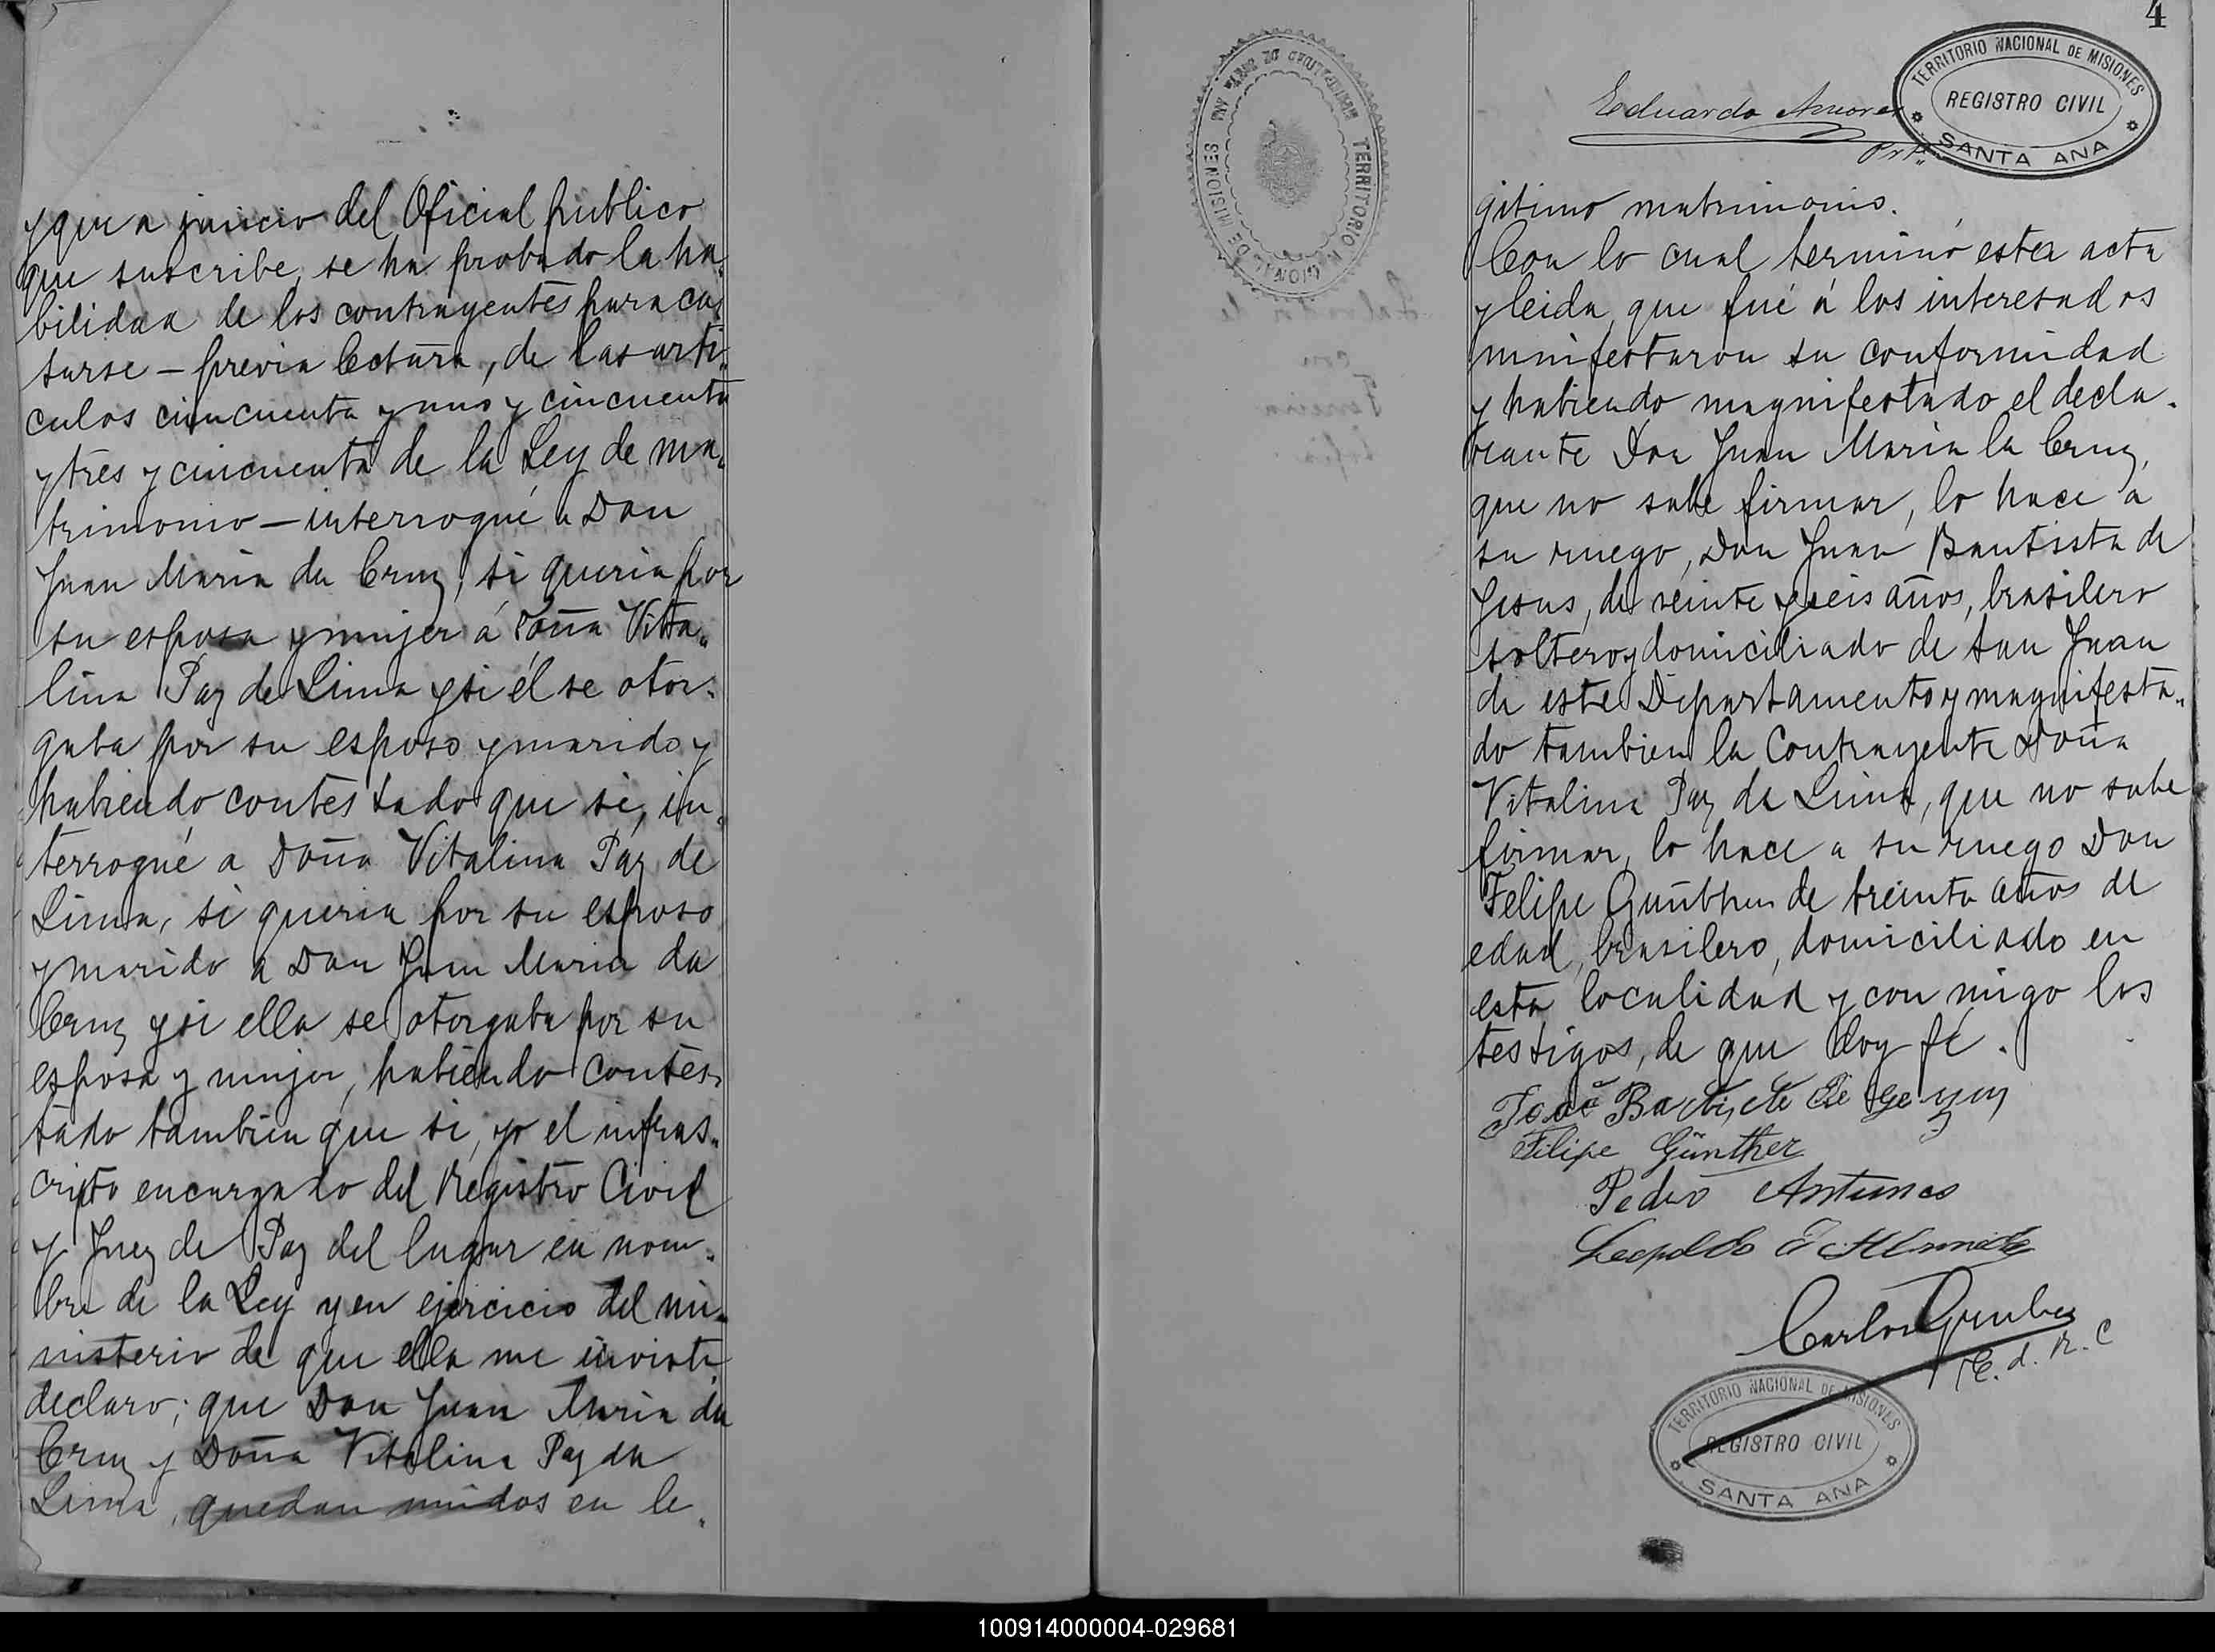 y que a juicio del Oficial publico
que suscribe, se ha probado la ha„
bilidad de los contrayentes para ca„
sarse – previa lectura, de las arti„
culos cincuenta y uno y cincuenta
y tres y cincuenta de la Ley de ma„
trimonio – interrogué a Don
Juan Maria da Cruz, si queria por
su esposa y mujer á Doña Vita„
lina Paz de Lima y si él se otor„
gaba por su esposo y marido y
habiendo contestado que si, in„
terrogué a Doña Vitalina Paz de
Lima, si queria por su esposo
y marido a Don Juan Maria da
Cruz y si ella se otorgaba por su
esposa y mujer, habiendo contes„
tado tambien que si, yo el infras„
cripto encargado del Registro Civil
y Juez de Paz del lugar en nom„
bre de la Ley y en ejercicio del mi„
nisterio de que ella me inviste
declaro; que Don Juan Maria da
Cruz y Doña Vitalina Paz da
Lima, quedan unidos en le„
4
TERRITORIO NACIONAL DE MISIONES
REGISTRO CIVIL
SANTA ANA
Eduardo
gitimo matrimonio.
Con lo cual terminó esta acta
y leida, que fué á los interesados
manifestaron su conformidad
y habiendo magnifestado el decla„
rante Don Juan Maria la Cruz,
que no sabe firmar, lo hace a
su ruego, Don Juan Bautista de
Jesus, de veinte y seis años, brasilero
soltero y domiciliado de San Juan
de este Departamento y magnifesta„
do tambien la Contrayente Doña
Vitalina Paz de Lima, que no sabe
firmar, lo hace a su ruego Don
Felipe Günther de treinta años de
edad, brasilero, domiciliado en
esta localidad y con migo los
testigos, de que doy fé.
Filipe Günther
Pedro Antunes
Leopoldo
Carlos
E. d. R. C
TERRITORIO NACIONAL DE MISIONES
REGISTRO CIVIL
SANTA ANA
100914000004-029681